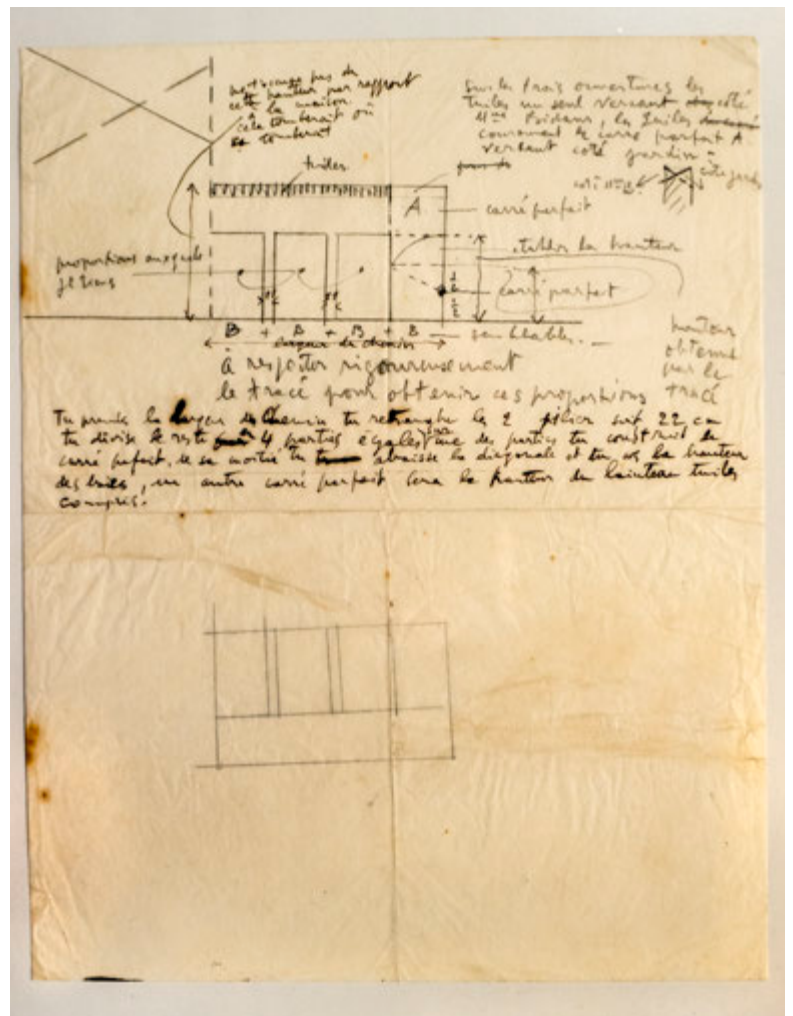 ne t'occupe pas de
hauteur par rapport
à la maison
cela tomberait où
tomberait
sur les trois ouvertures les
tuiles un seul versant côté
Mme, les tuiles
couronnant le carré parfait A
versant côté jardin
tuiles
côté
A
carré parfait
établir la hauteur
proportions auxquels
je tiens
carré parfait
B + B + B + B
semblables.
largeur du chemin
hauteur
obtenue
par le
tracé
à respecter rigoureusement
le tracé pour obtenir ces proportions
Tu prends la largeur du chemin tu retranche les 2 pilier soit 22 cm
tu divise le reste 4 parties egales une des parties tu construit un
carré parfait, de sa moitié tu abaisse la diagonale et tu as la hauteur
des baies, un autre carré parfait sera la hauteur du lainteau tuiles
compris.